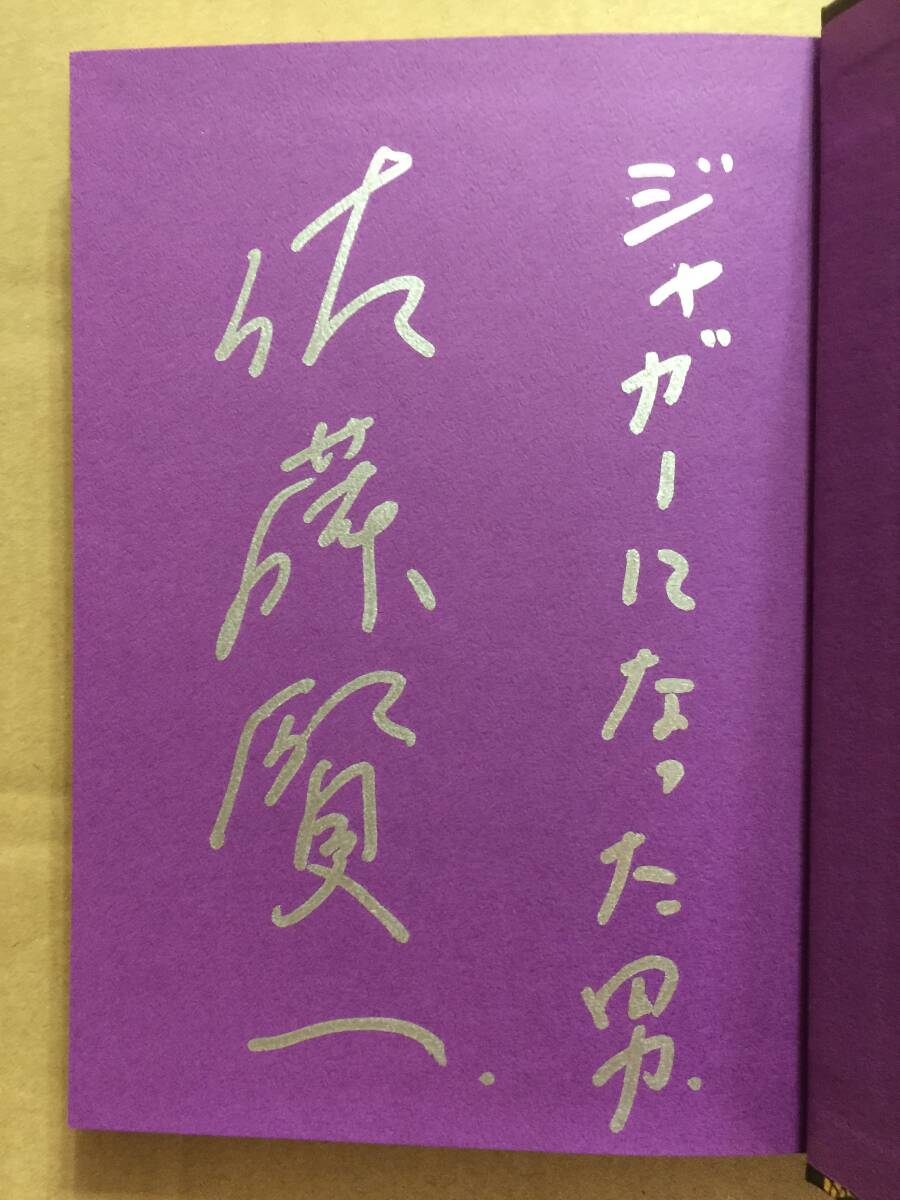 ジャガーになった男.
佐藤賢一.